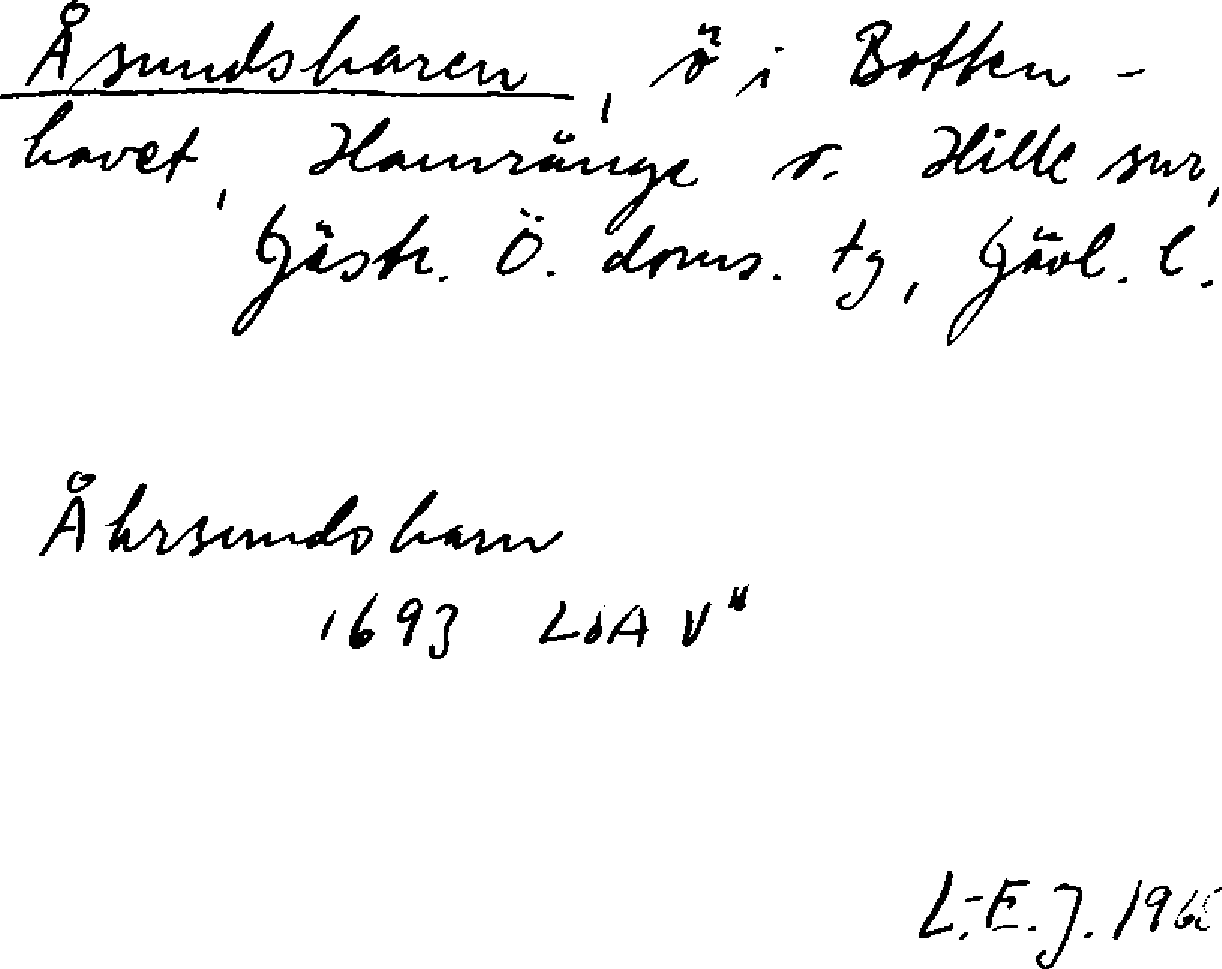 Åsundsharen, ö i Botten-
havet, Hamrånge o. Hille snr,
Gästr. Ö. doms. tg, Gävl. l.
Åhrsundsharn
1693 LSA V"
L.-E. J. 196